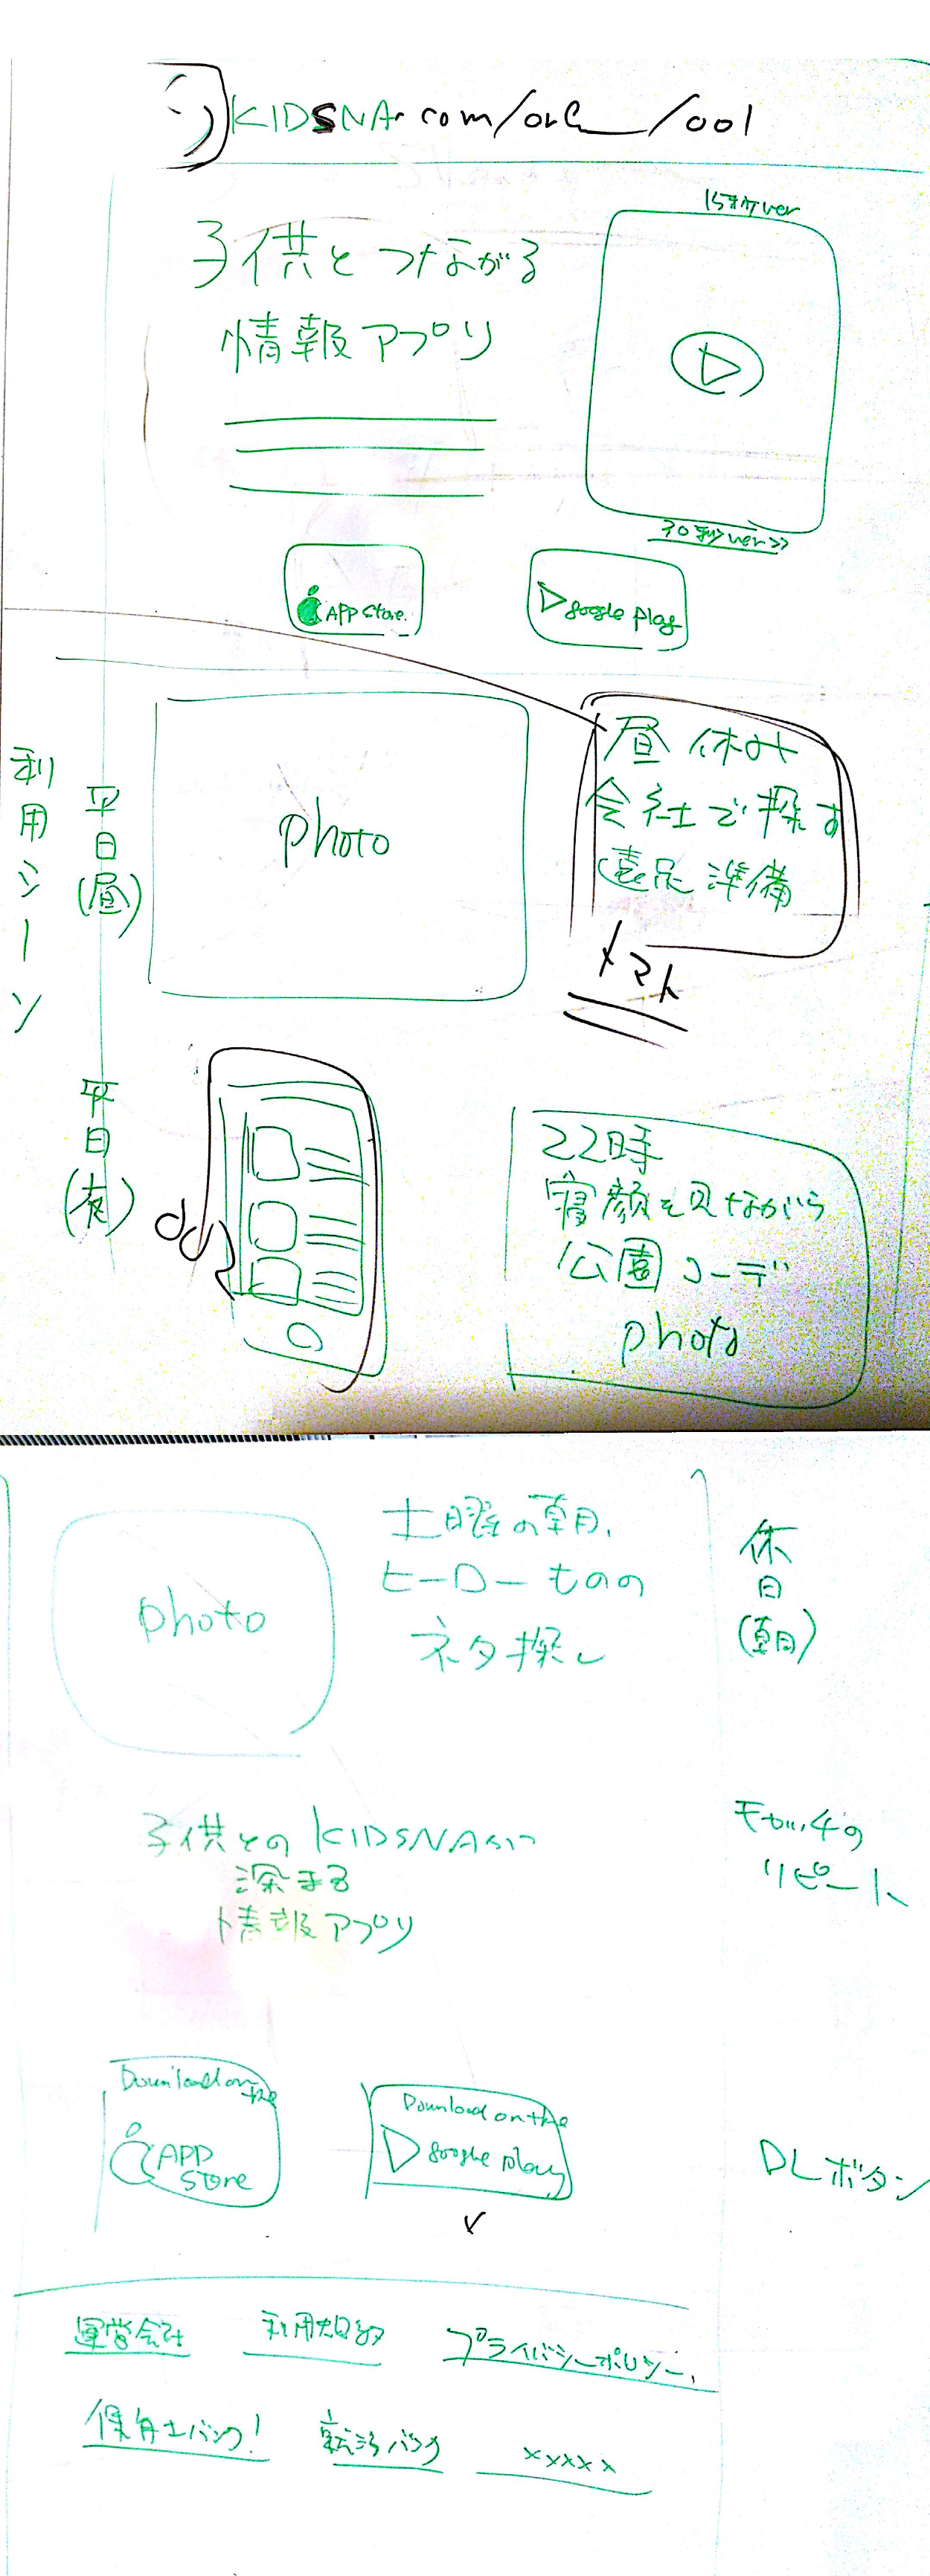 KIDSNA.com/     /001
15秒ver
子供とつながる
情報アプリ
30秒ver>>
APP Store.
google play
利用シーン
平日(昼)
photo
昼休み
会社で探す
遠足準備
平日(夜)
22時
寝顔を見ながら
公園コーデ
photo
photo
土曜の朝、
ヒーローものの
ネタ探し
休日(朝)
子供との KIDSNAが
深まる
情報アプリ
リピート
Download on the
APP
Store
Download on the
google play
DLボタン
運営会社
利用規約
プライバシーポリシー
保育士バンク!
xxxxx